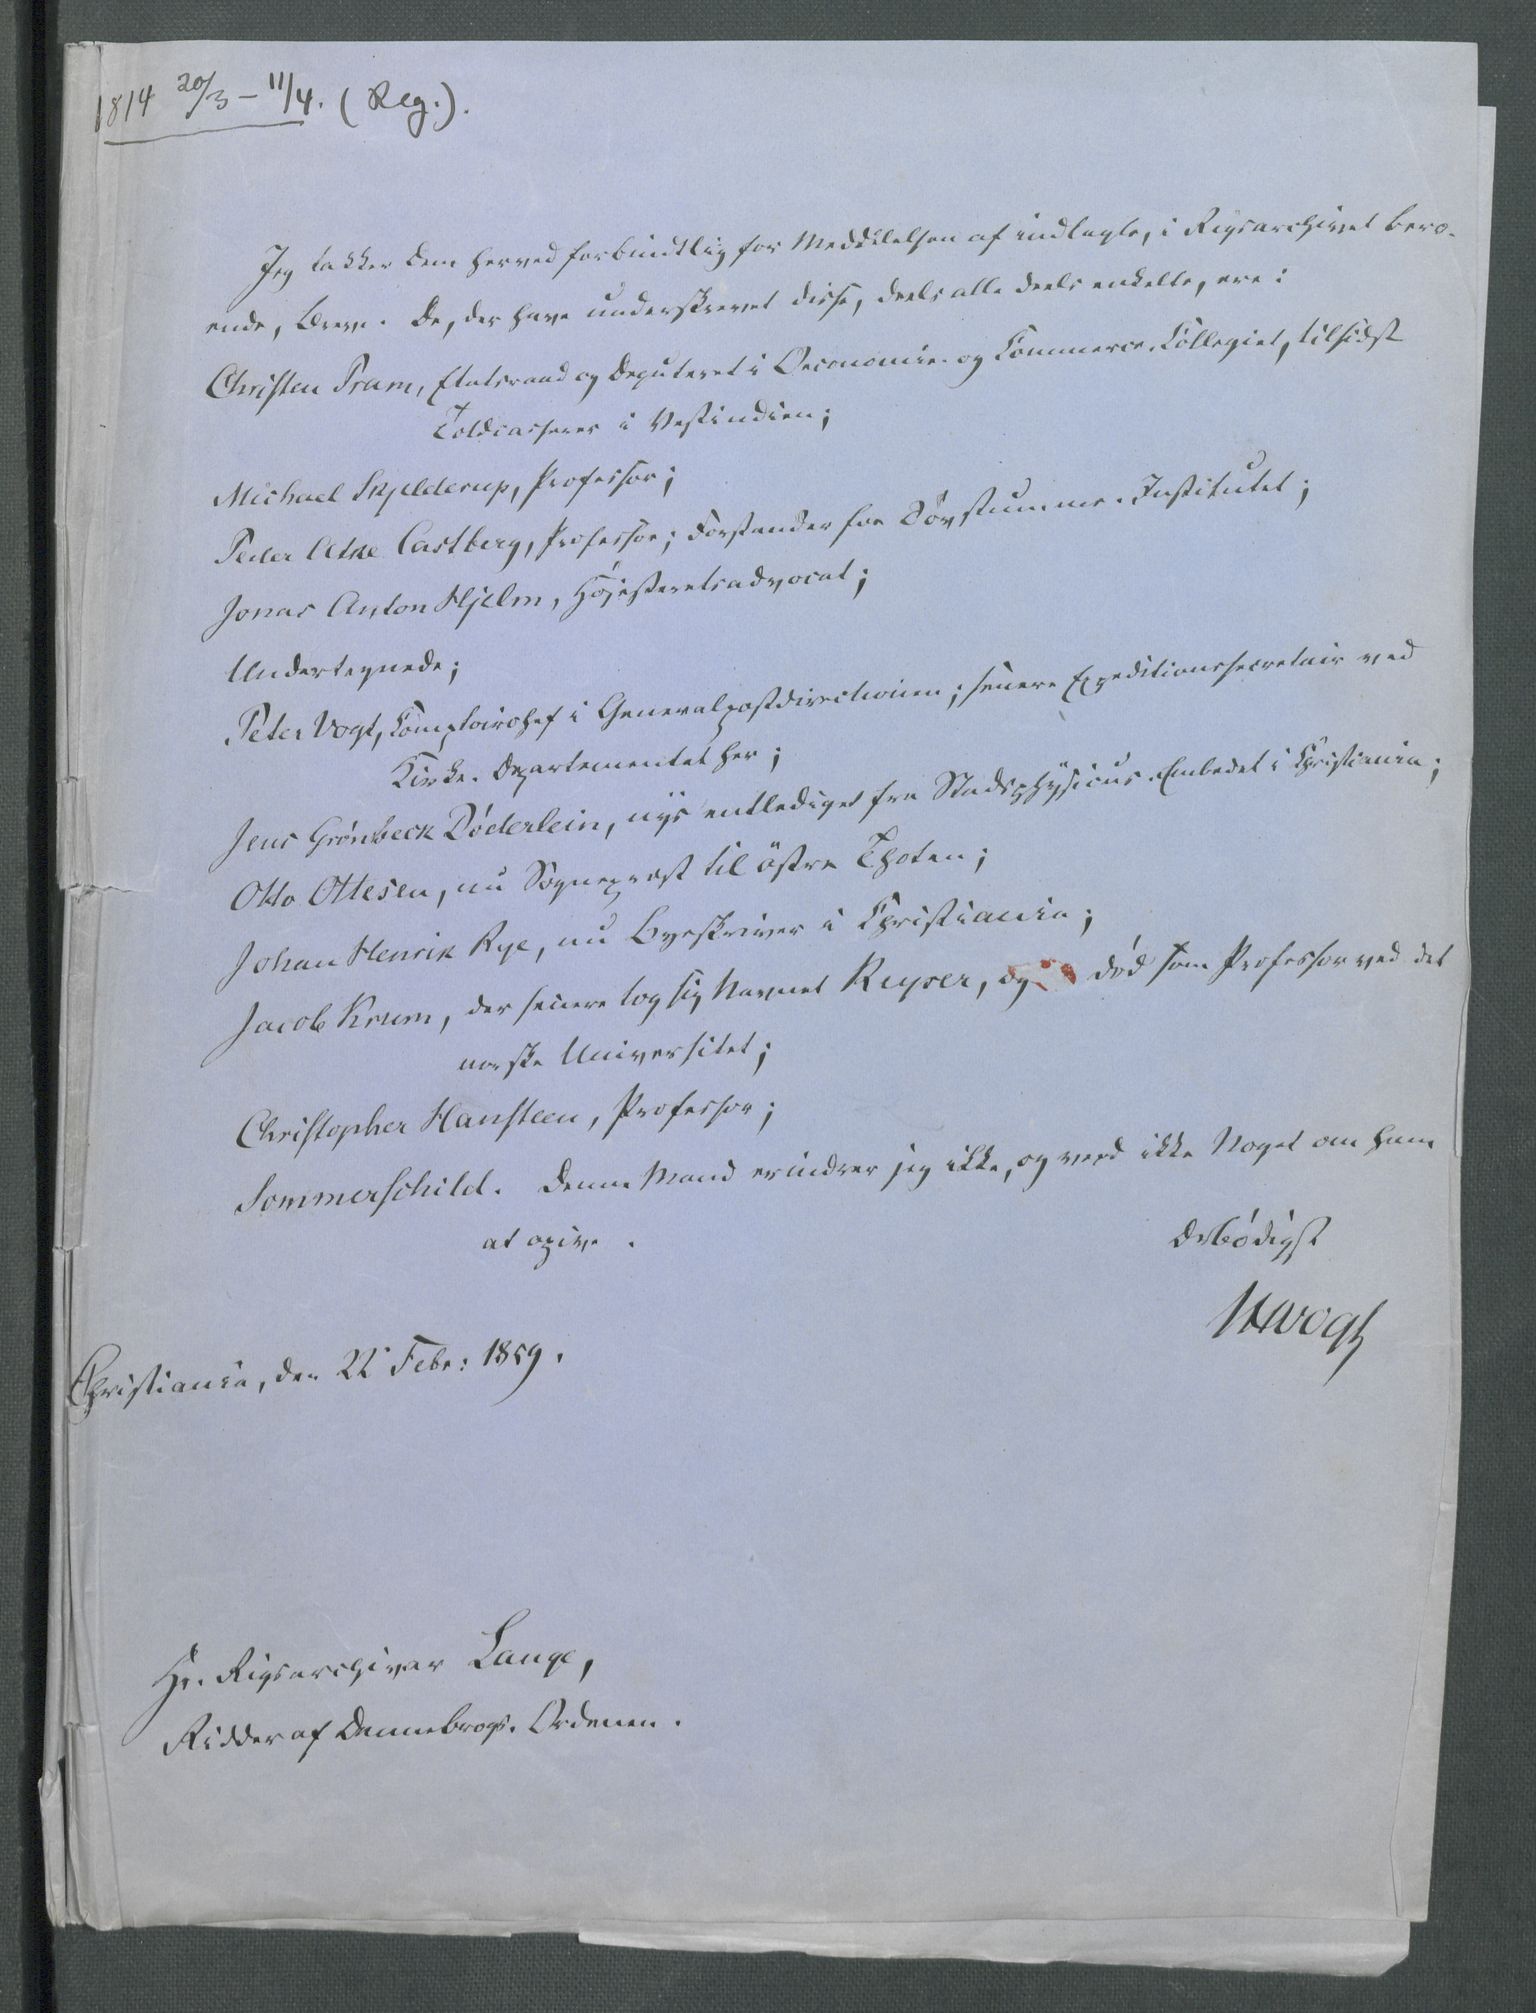 1814 20/3 – 11/4. (Reg.).
Jeg takker Dem herved forbindtlig for Meddelelsen af indlagte, i Rigsarchivet bero-
ende, Breve. De, der have underskrevet disse, deels alle deels enkelte, ere:
Christen Pram, Etatsraad og Deputeret i Oeconomie- og Commerce-Collegiet, tilsidst
Toldcasserer i Vestindien;
Michael Skjelderup, Professor;
Peder Atke Castberg, Professor; Forstander for Døvstumme-Institutet;
Jonas Anton Hjelm, Höjesteretsadvocat;
Undertegnede;
Peter Vogt, Comptoirchef i Generalpostdirectionen; senere Expeditionssecretair ved
Kirke-Departementet her;
Jens Grönbeck Döderlein, nys entlediget fra Stadsphysicus-Embedet i Christiania;
Otto Ottesen, nu Sogneprest til östre Thoten;
Johan Henrik Rye, nu Byeskriver i Christiania;
Jacob Krum, der senere tog sig Navnet Keyser, og död som Professor ved det
norske Universitet;
Christopher Hansteen, Professor;
Sommerschild. Denne Mand erindrer jeg ikke, og veed ikke Noget om ham
at opgive.
Ærbödigst
Vogt
Christiania, den 22 Febr: 1859.
Hr. Rigsarchivar Lange,
Ridder af Dannebrogs-Ordenen.